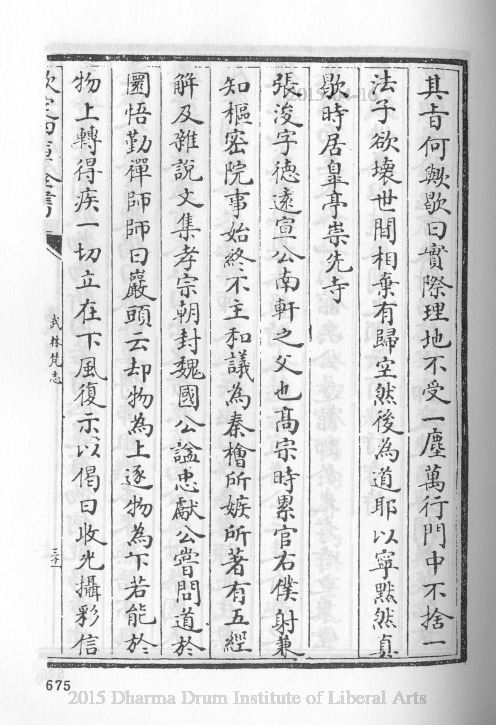 其旨何歟歇曰實際理地不受一塵萬行門中不捨一
法子欲壞世間相棄有歸空然後為道耶以寧默然真
歇時居皐亭崇先寺
張浚字德遠宣公南軒之父也髙宗時累官右僕射兼
知樞密院事始終不主和議為秦檜所嫉所著有五經
解及雜說文集孝宗朝封魏國公諡忠獻公嘗問道於
圜悟勤禪師師曰巖頭云却物為上逐物為下若能於
物上轉得疾一切立在下風復示以偈曰收光攝彩信
欽定四庫全書
武林梵志
675
2015 Dharma Drum Institute of Liberal Arts